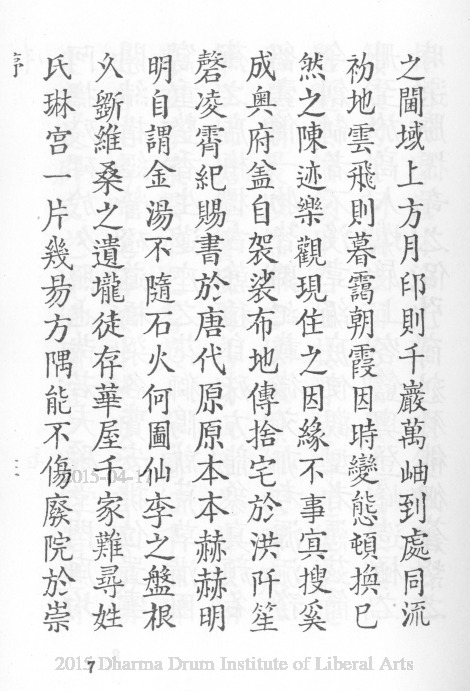 之閫域上方月印則千巖萬岫到處同流
礽地雲飛則暮靄朝霞因時變態頓換已
然之陳迹樂觀現住之因緣不事寘搜奚
成奧府盖自袈裟布地傳捨宅於洪阡笙
磬凌霄紀賜書於唐代原原本本赫赫明
明自謂金湯不隨石火何圖仙李之盤根
乆斵維桑之遺壠徒存華屋千家難尋姓
氏琳宫一片幾易方隅能不傷廢院於崇
序
三
7
2015-04-17
2015 Dharma Drum Institute of Liberal Arts